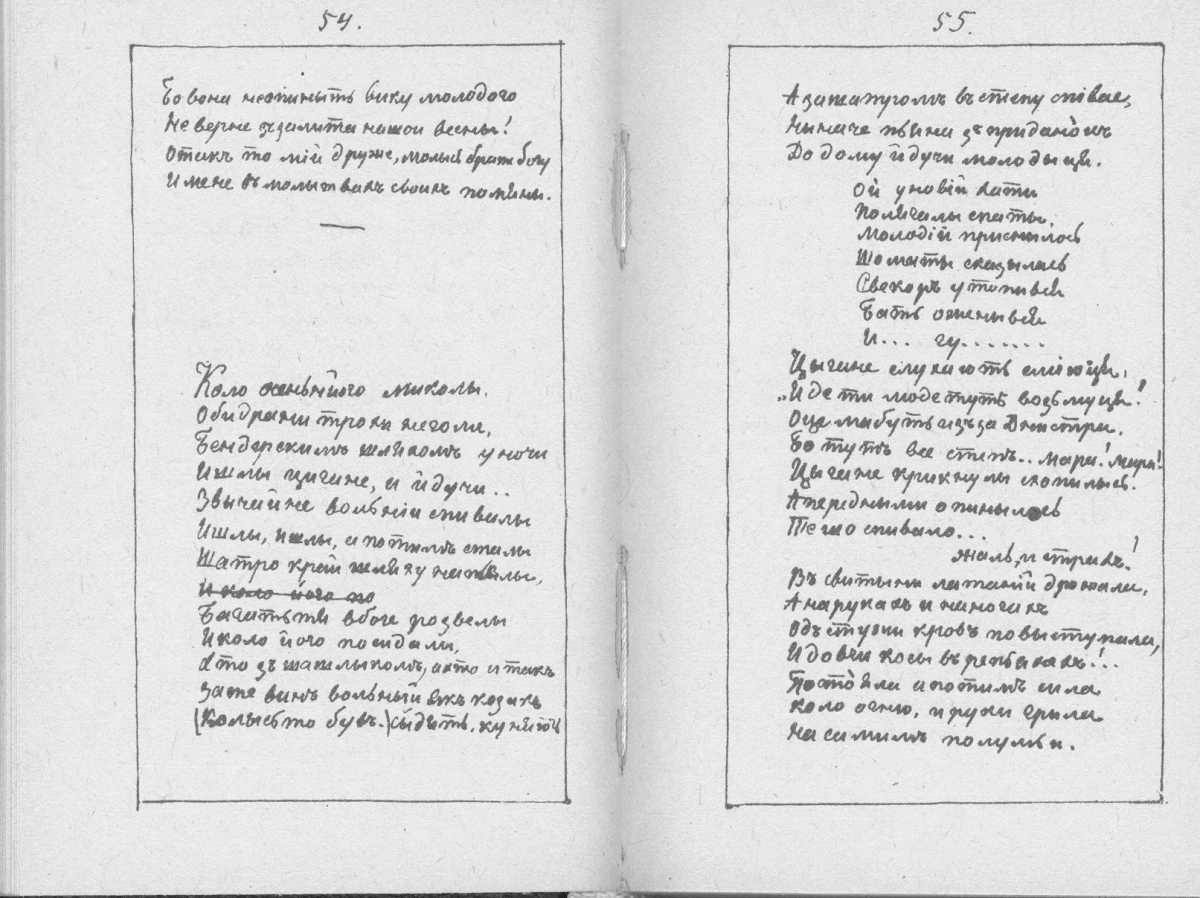 54.
Бо вона неспиныть вику молодого
Не верне зъ залита нашои весны!
Отакъ то мій друже, молый брате богу
И мене въ молытвахъ своихъ помяны.
Коло осиньнёго миколы.
Обидрани трохи неголи,
Бендерскимъ шляхомъ уночи
Ишлы цигане, и йдучи..
Звычайне вольніи спивалы
Ишлы, ишлы, а потимъ сталы
Шатро край шляху напьялы,
И коло його по
Багатьтя вбоге розвелы
И коло його посидали,
Хто зъ шашлыкомъ, а хто и такъ
Зате винъ вольный якъ козакъ
(Колысьто бувъ.) сыдять, куняючи
55.
А за шатромъ въ степу співае,
Ныначе пьяна зъ приданохъ
До дому йдучи молодыця.
Ой у новій хати
Полягалы спаты
Молодій приснылось
Шо маты сказылась
Свекоръ утопився
Бать оженывся
И... гу.......
Цыгане слухають сміюцця,
„И де ти люде тутъ возьмуцця!
Оце мабуть изъ за Днистра.
Бо тутъ все степъ.. мара! мара!
Цыгане крикнулы схопылысь!
А передными опынылось
Те шо спивало...
Жаль, и страхъ!
Въ свитыни латаній дрожала,
А на рукахъ и на ногахъ
Одъ стужи кровъ повыступала,
И довги косы въ репьяхахъ!..
Постояла а потимъ сила
Коло огню, и руки грила
На самимъ полумьи.